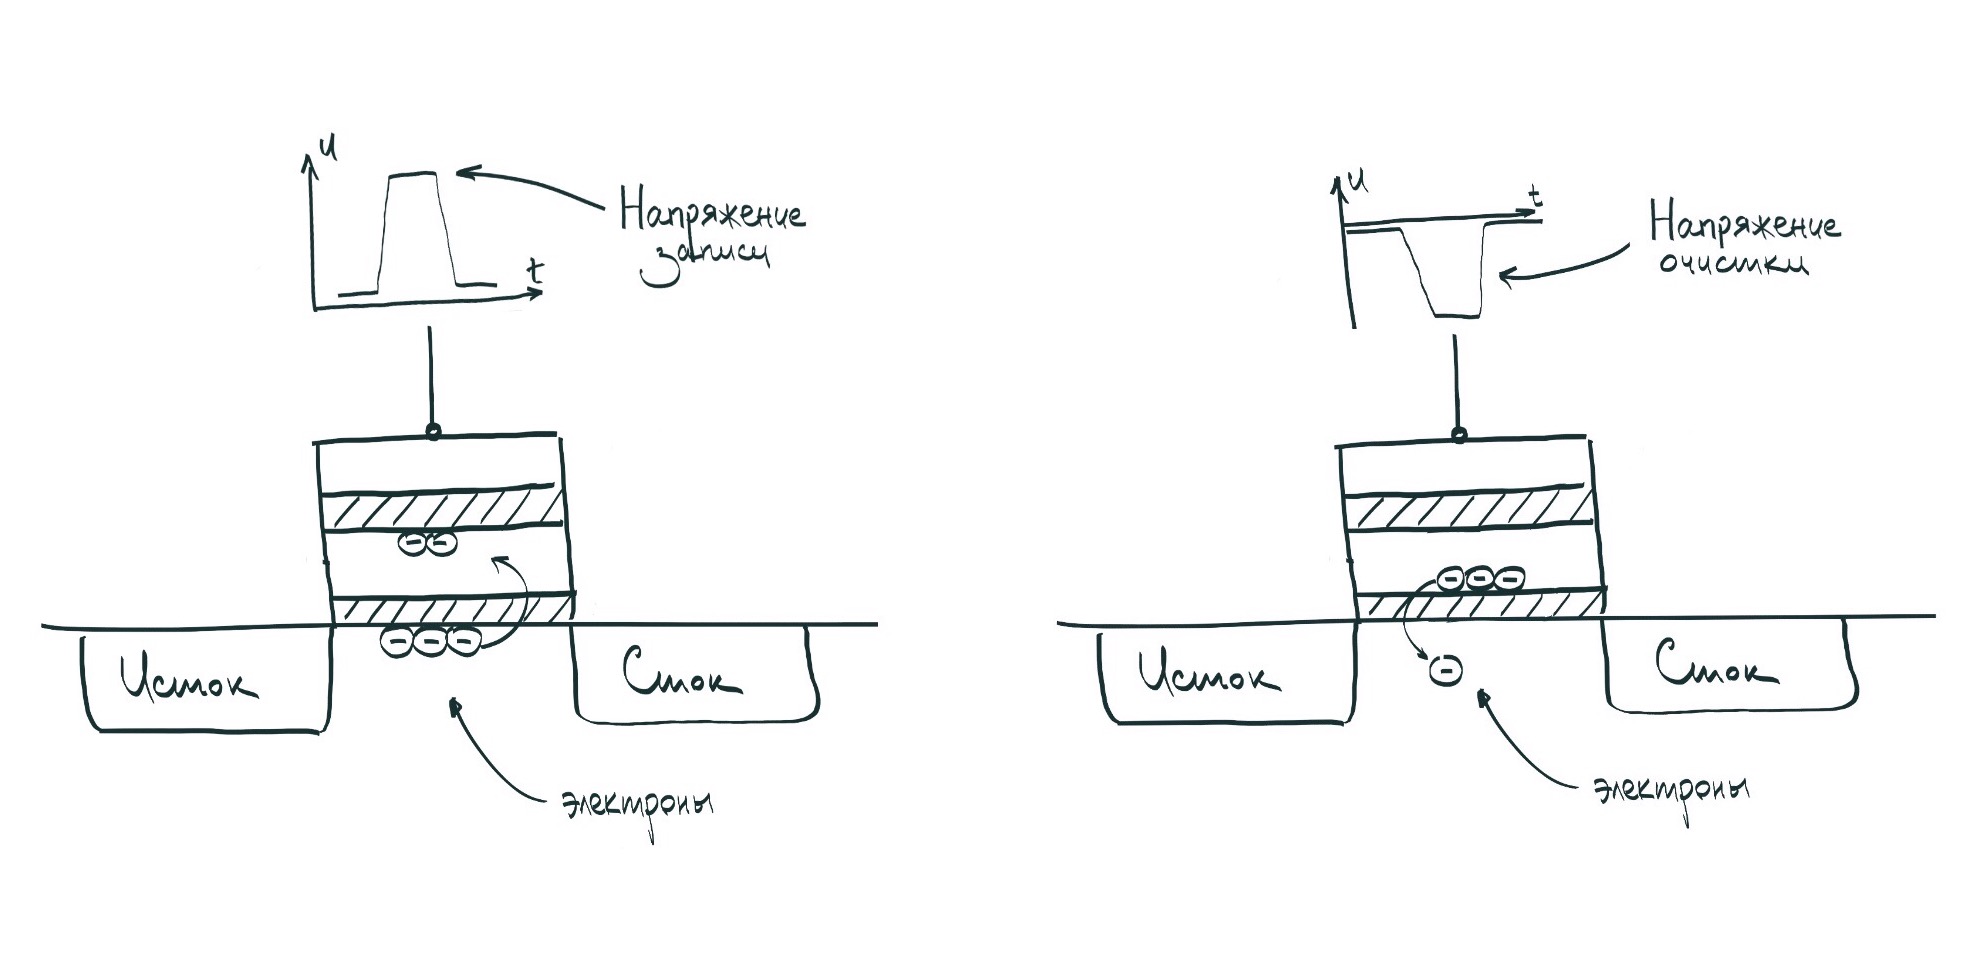 U
Напряжение
записи
t
Исток
Сток
электроны
U
t
Напряжение
очистки
Исток
Сток
электроны